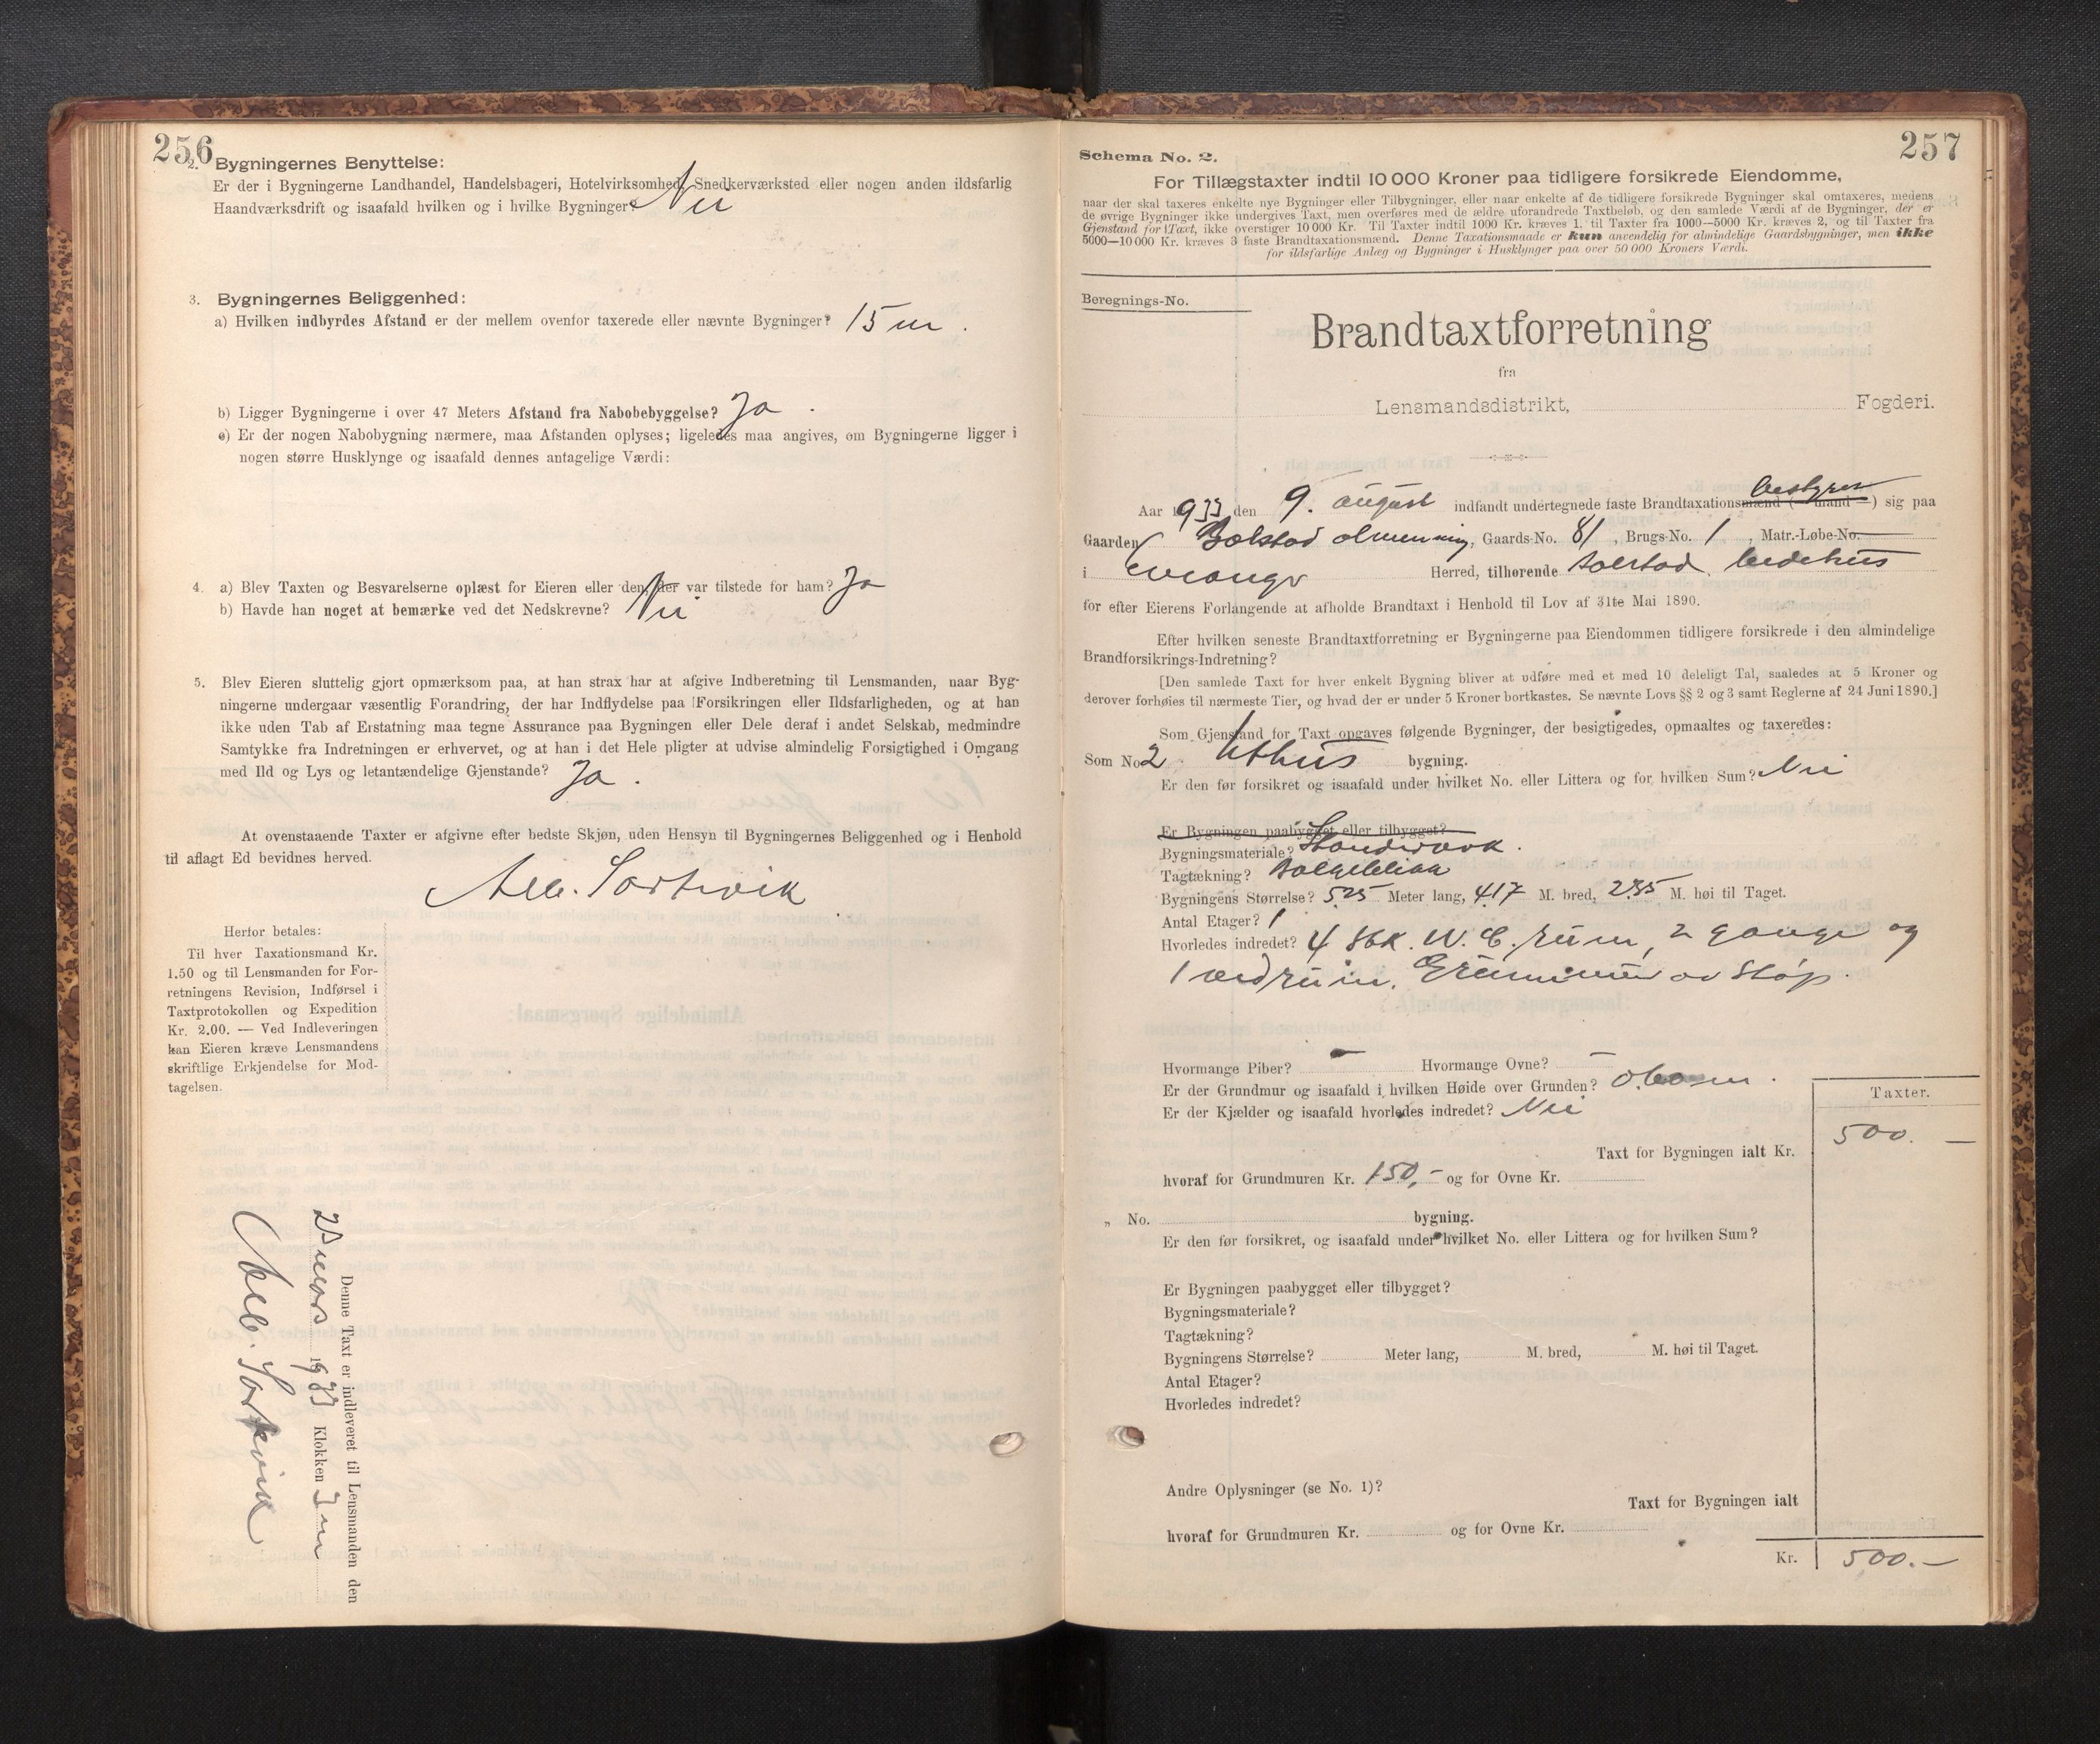 256
2. Bygningernes Benyttelse:
Er der i Bygningerne Landhandel, Handelsbageri, Hotelvirksomhed, Snedkerværksted eller nogen anden ildsfarlig
Haandværksdrift og isaafald hvilken og i hvilke Bygninger? Nei
3. Bygningernes Beliggenhed:
a) Hvilken indbyrdes Afstand er der mellem ovenfor taxerede eller nævnte Bygninger? 15 m.
b) Ligger Bygningerne i over 47 Meters Afstand fra Nabobebyggelse? Ja.
c) Er der nogen Nabobygning nærmere, maa Afstanden oplyses; ligeledes maa angives, om Bygningerne ligger i
nogen større Husklynge og isaafald dennes antagelige Værdi:
4. a) Blev Taxten og Besvarelserne oplæst for Eieren eller den, der var tilstede for ham? Ja
b) Havde han noget at bemærke ved det Nedskrevne? Nei
5. Blev Eieren sluttelig gjort opmærksom paa, at han strax har at afgive Indberetning til Lensmanden, naar Byg-
ningerne undergaar væsentlig Forandring, der har Indflydelse paa Forsikringen eller Ildsfarligheden, og at han
ikke uden Tab af Erstatning maa tegne Assurance paa Bygningen eller Dele deraf i andet Selskab, medmindre
Samtykke fra Indretningen er erhvervet, og at han i det Hele pligter at udvise almindelig Forsigtighed i Omgang
med Ild og Lys og letantændelige Gjenstande? Ja.
At ovenstaaende Taxter er afgivne efter bedste Skjøn, uden Hensyn til Bygningernes Beliggenhed og i Henhold
til aflagt Ed bevidnes herved.
Herfor betales:
Til hver Taxationsmand Kr.
1.50 og til Lensmanden for For-
retningens Revision, Indførsel i
Taxtprotokollen og Expedition
Kr. 2.00. — Ved Indleveringen
kan Eieren kræve Lensmandens
skriftlige Erkjendelse for Mod-
tagelsen.
Denne Taxt er indleveret til Lensmanden den
1933 Klokken
257
Schema No. 2.
For Tillægstaxter indtil 10 000 Kroner paa tidligere forsikrede Eiendomme,
naar der skal taxeres enkelte nye Bygninger eller Tilbygninger, eller naar enkelte af de tidligere forsikrede Bygninger skal omtaxeres, medens
de øvrige Bygninger ikke undergives Taxt, men overføres med de ældre uforandrede Taxtbeløb, og den samlede Værdi af de Bygninger, der er
Gjenstand for Taxt, ikke overstiger 10 000 Kr. Til Taxter indtil 1000 Kr. kræves 1, til Taxter fra 1000—5000 Kr. kræves 2, og til Taxter fra
5000—10 000 Kr. kræves 3 faste Brandtaxationsmænd. Denne Taxationsmaade er kun anvendelig for almindelige Gaardsbygninger, men ikke
for ildsfarlige Anlæg og Bygninger i Husklynger paa over 50 000 Kroners Værdi.
Beregnings-No.
Brandtaxtforretning
fra
Lensmandsdistrikt, Fogderi.
Aar 1933 den 9. august indfandt undertegnede faste Brandtaxationsmænd (—mand—) bestyrer sig paa
Gaarden Bolstad almenning, Gaards-No. 81, Brugs-No. 1, Matr.-Løbe-No.
i Evanger Herred, tilhørende Bolstad bedehus
for efter Eierens Forlangende at afholde Brandtaxt i Henhold til Lov af 31te Mai 1890.
Efter hvilken seneste Brandtaxtforretning er Bygningerne paa Eiendommen tidligere forsikrede i den almindelige
Brandforsikrings-Indretning?
[Den samlede Taxt for hver enkelt Bygning bliver at udføre med et med 10 deleligt Tal, saaledes at 5 Kroner og
derover forhøies til nærmeste Tier, og hvad der er under 5 Kroner bortkastes. Se nævnte Lovs §§ 2 og 3 samt Reglerne af 24 Juni 1890.]
Som Gjenstand for Taxt opgaves følgende Bygninger, der besigtigedes, opmaaltes og taxeredes:
Som No. 2. Uthus bygning.
Er den før forsikret og isaafald under hvilket No. eller Littera og for hvilken Sum? Nei
Er Bygningen paabygget eller tilbygget?
Bygningsmateriale? Standverk.
Tagtækning? Bølgeblikk
Bygningens Størrelse? 5.25 Meter lang, 4.17 M. bred, 2.35 M. høi til Taget.
Antal Etager? 1
Hvorledes indredet? 4 stk. W.C. rum, 2 gange og
1 vedrum. Grunnmur av støp.
Hvormange Piber? — Hvormange Ovne? —
Er der Grundmur og isaafald i hvilken Høide over Grunden?
Er der Kjælder og isaafald hvorledes indredet? Nei
Taxter.
Taxt for Bygningen ialt Kr. 500. —
hvoraf for Grundmuren Kr. 150,- og for Ovne Kr.
„ No. bygning.
Er den før forsikret, og isaafald under hvilket No. eller Littera og for hvilken Sum?
Er Bygningen paabygget eller tilbygget?
Bygningsmateriale?
Tagtækning?
Bygningens Størrelse? Meter lang, M. bred, M. høi til Taget.
Antal Etager?
Hvorledes indredet?
Andre Oplysninger (se No. 1)?
Taxt for Bygningen ialt
hvoraf for Grundmuren Kr. og for Ovne Kr.
Kr. 500.—